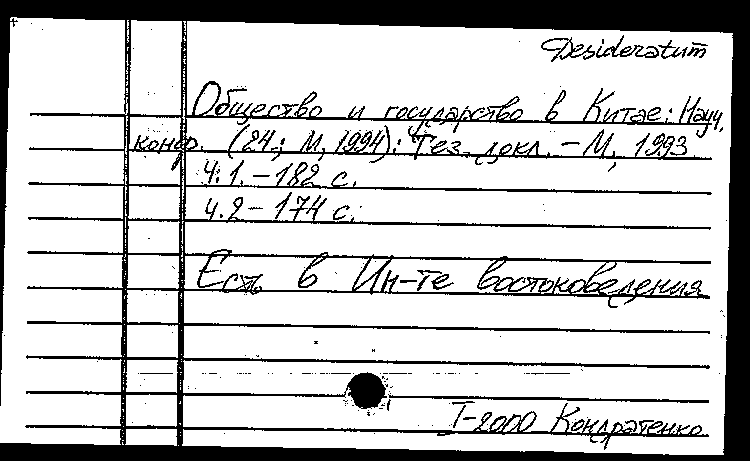 Desideratum
Общество и государство в Китае: Науч.
конф. (24.; М., 1994): Тез. докл. – М., 1993
Ч. 1. – 182 с.
Ч. 2 – 174 с.
Есть в Ин-те востоковедения
I-2000 Кондратенко